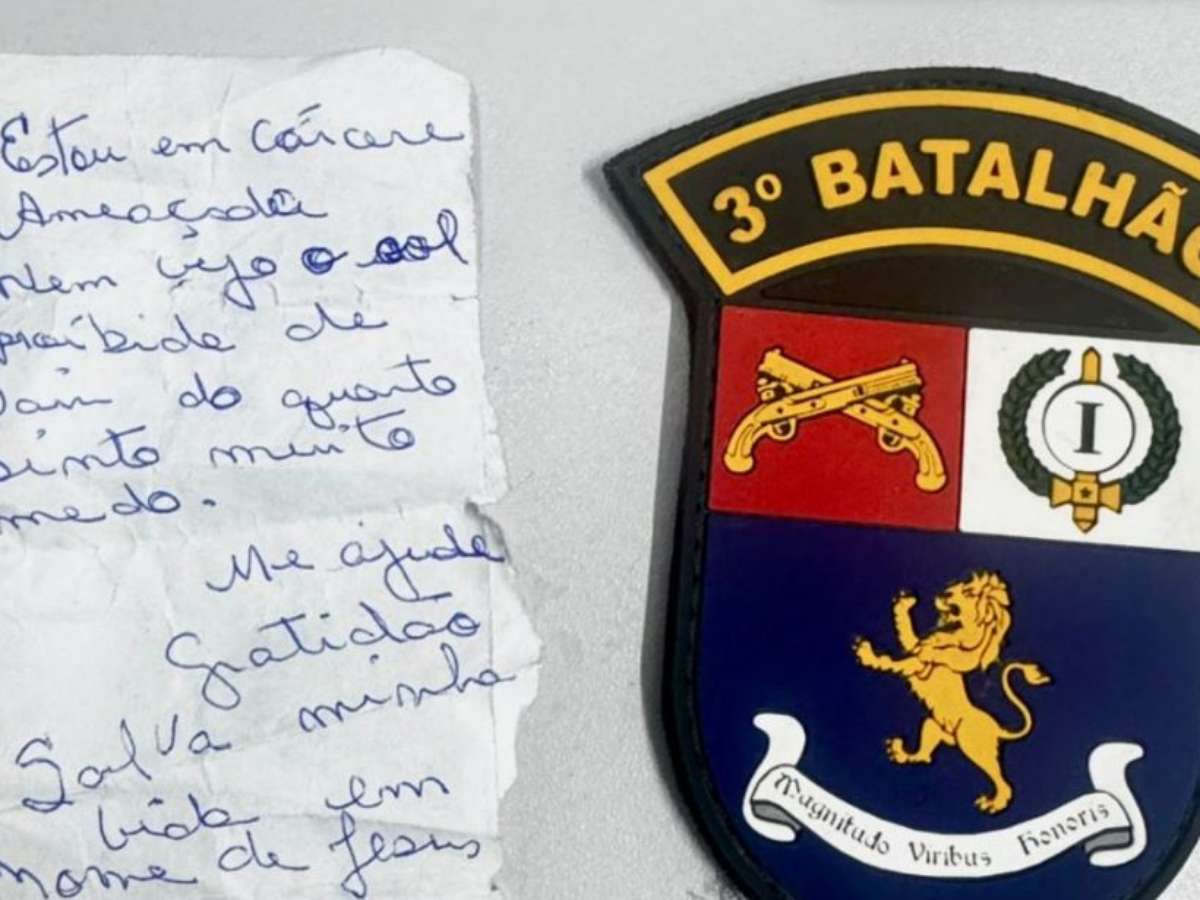 Estou em cárcere
Ameaçada
Nem vejo o sol
proibida de
sair do quarto
sinto muito
medo.
Me ajude
Gratidão
Salva minha
vida em
nome de Jesus
3º BATALHÃO
I
Magnitudo Viribus Honoris